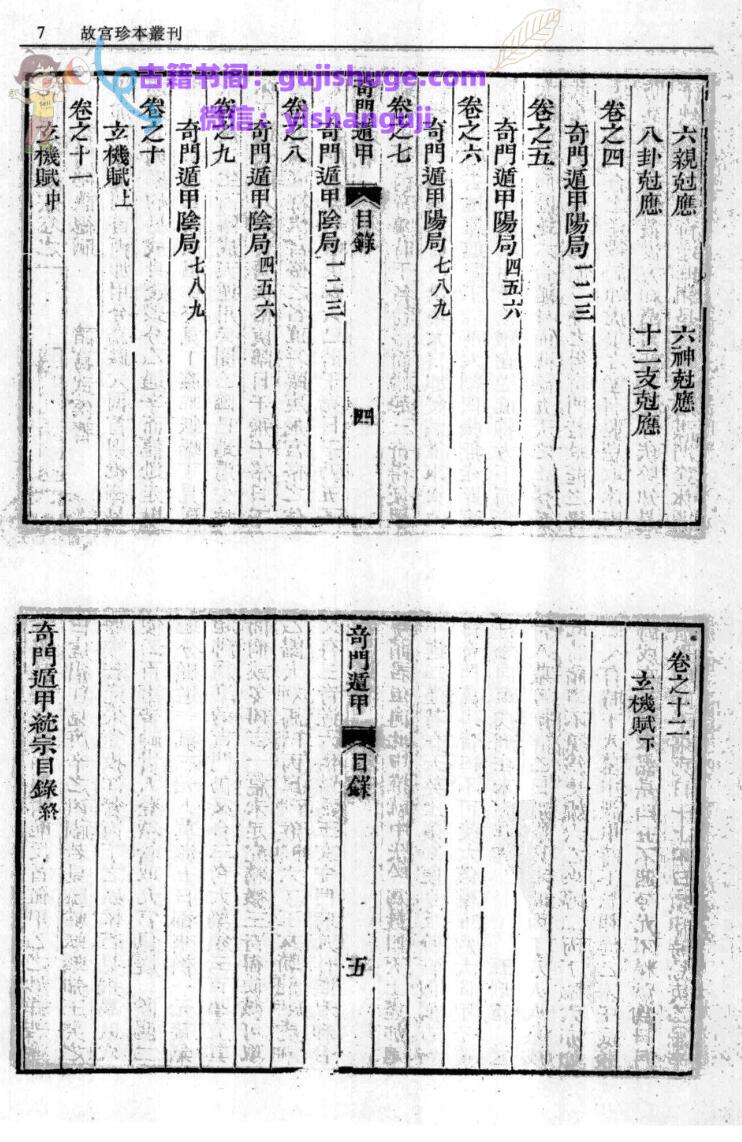 7 故宮珍本叢刊
古籍书阁：gujishuge.com
微信：yishanguji
六親尅應 六神尅應
八卦尅應 十二支尅應
卷之四
奇門遁甲陽局一二三
卷之五
奇門遁甲陽局四五六
卷之六
奇門遁甲陽局七八九
卷之七
奇門遁甲 目錄 四
奇門遁甲陰局一二三
卷之八
奇門遁甲陰局四五六
卷之九
奇門遁甲陰局七八九
卷之十
玄機賦上
卷之十一
玄機賦中
卷之十二
玄機賦下
奇門遁甲 目錄 五
奇門遁甲統宗目錄終